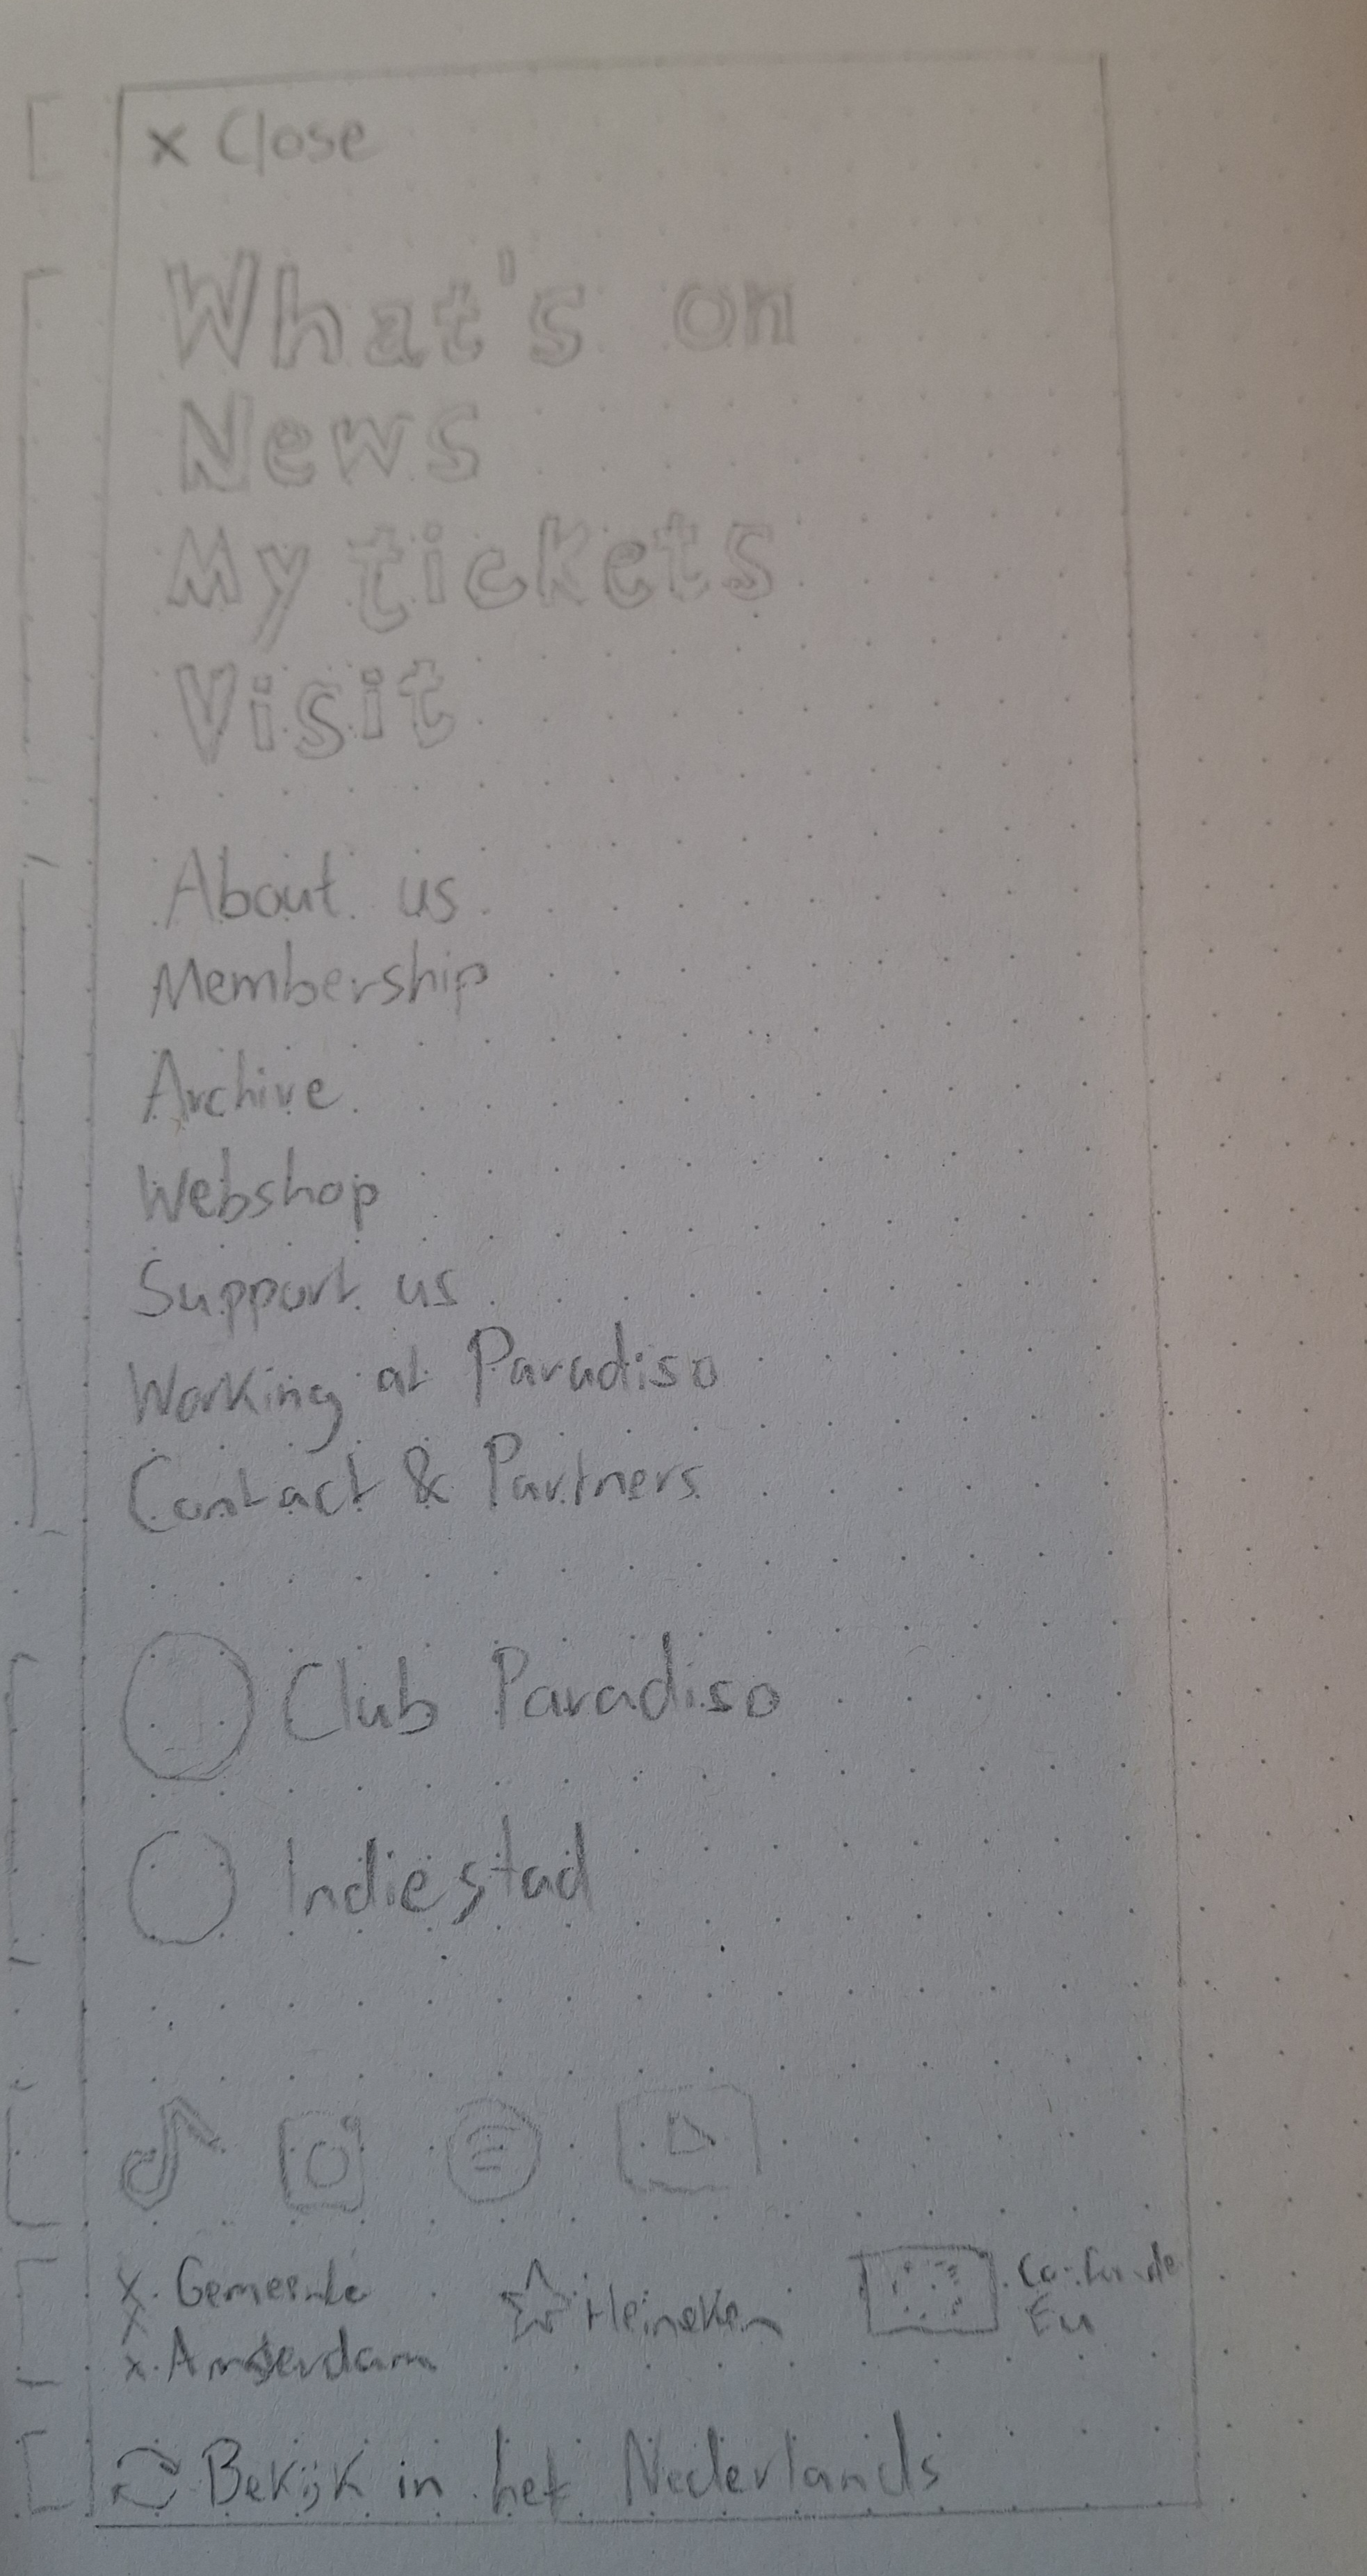 x Close
What's on
News
My tickets
Visit
About us
Membership
Archive
Webshop
Support us
Working at Paradiso
Contact & Partners
Club Paradiso
Indiestad
x Gemeente
x
x Amsterdam
Heineken
Eu
Bekijk in het Nederlands